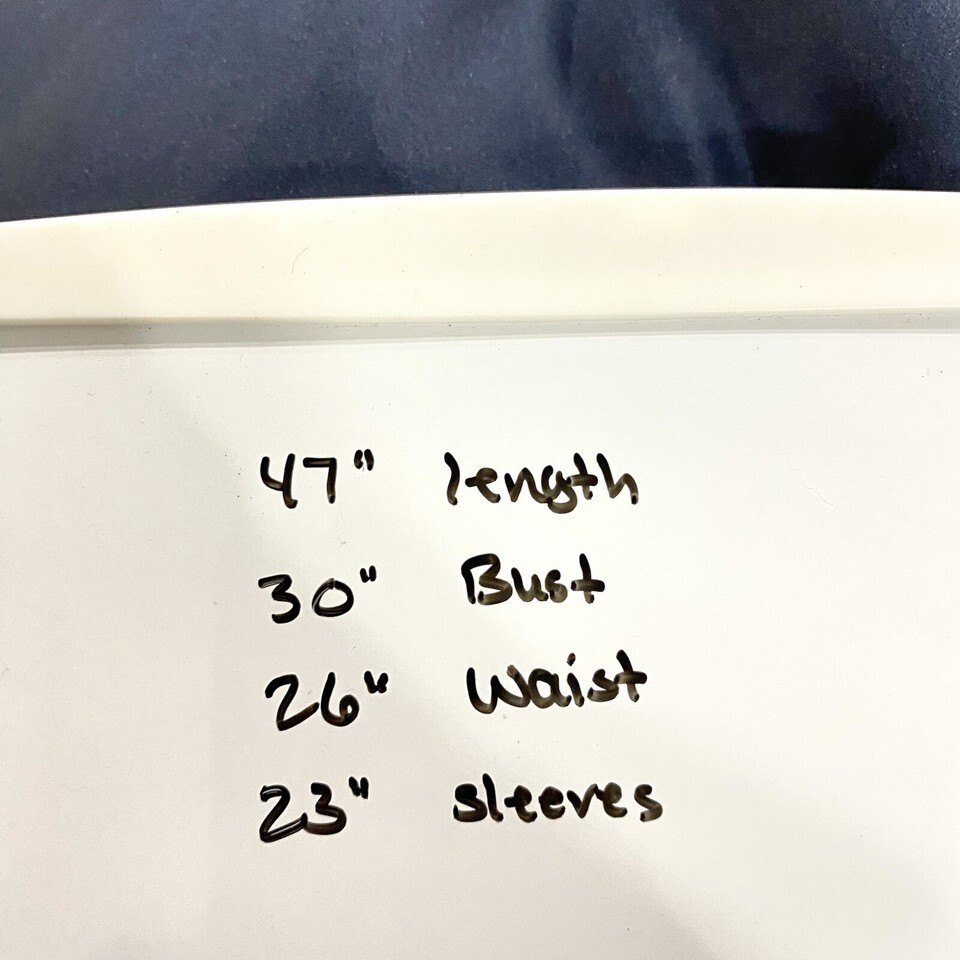 47" length
30" Bust
26" Waist
23" sleeves